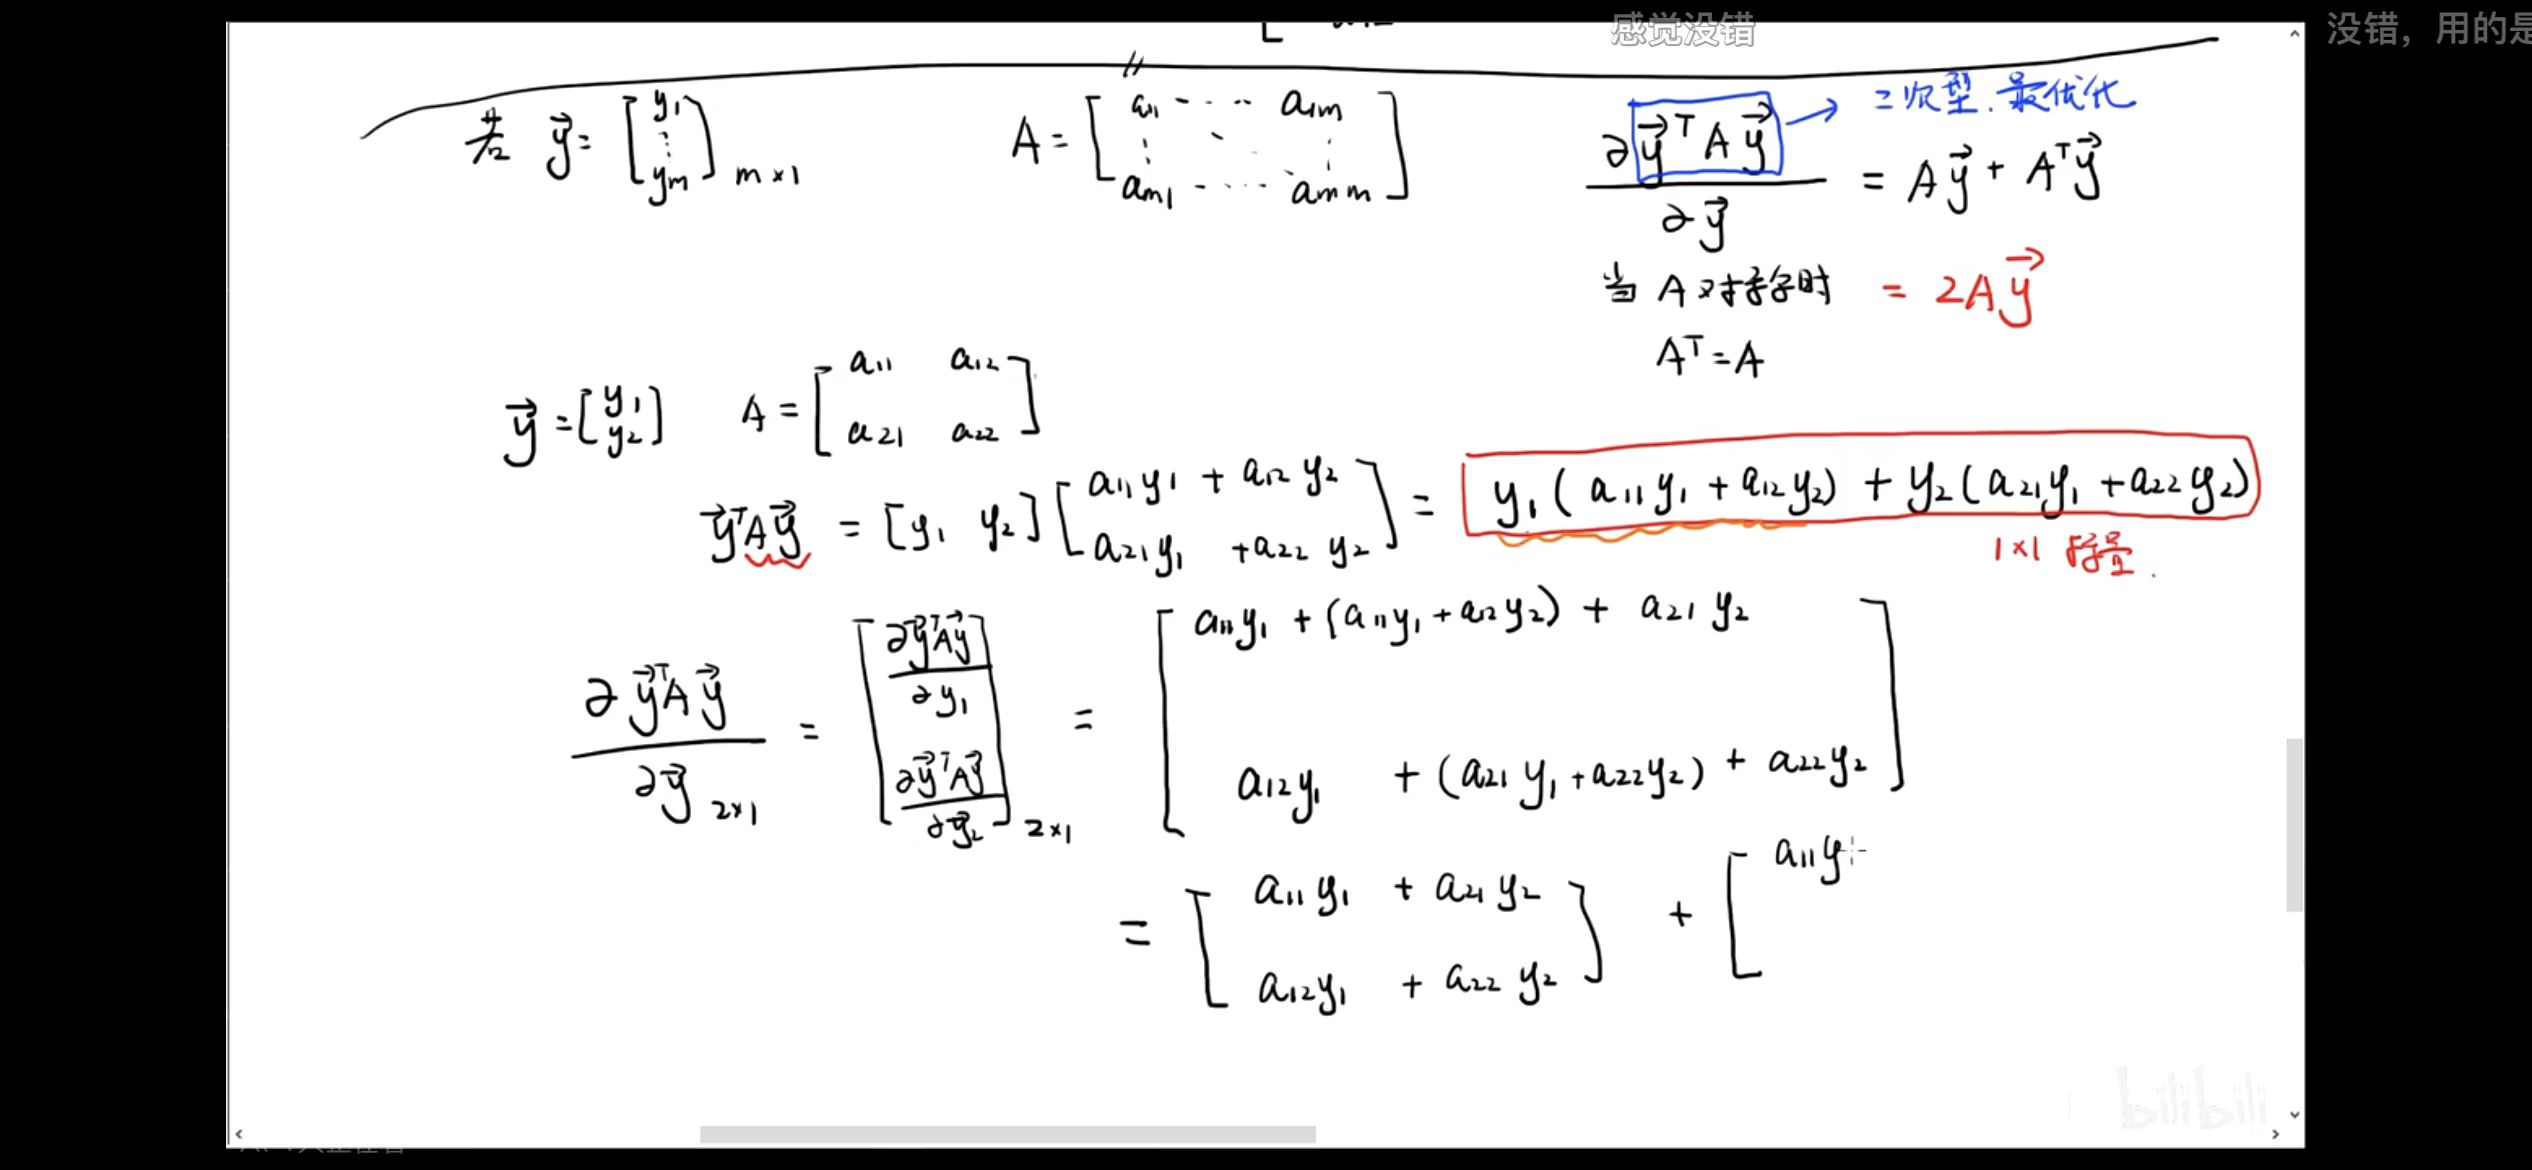 感觉没错
没错，用的是
若 y⃗ = [y₁ ⋮ yₘ] m×1
A = [a₁₁ ⋯ a₁ₘ ⋮ ⋱ ⋮ aₘ₁ ⋯ aₘₘ]
∂y⃗ᵀAy⃗ / ∂y⃗ = Ay⃗ + Aᵀy⃗
→ 二次型. 最优化
当 A 对称时 = 2Ay⃗
Aᵀ = A
y⃗ = [y₁ y₂] A = [a₁₁ a₁₂ a₂₁ a₂₂]
y⃗ᵀAy⃗ = [y₁ y₂] [a₁₁y₁ + a₁₂y₂ a₂₁y₁ + a₂₂y₂] = y₁(a₁₁y₁ + a₁₂y₂) + y₂(a₂₁y₁ + a₂₂y₂)
1×1 标量.
∂y⃗ᵀAy⃗ / ∂y⃗ 2×1 = [∂y⃗ᵀAy⃗ / ∂y₁ ∂y⃗ᵀAy⃗ / ∂y⃗₂] 2×1 = [a₁₁y₁ + (a₁₁y₁ + a₁₂y₂) + a₂₁y₂ a₁₂y₁ + (a₂₁y₁ + a₂₂y₂) + a₂₂y₂]
= [a₁₁y₁ + a₂₁y₂ a₁₂y₁ + a₂₂y₂] + [a₁₁y
bilibili